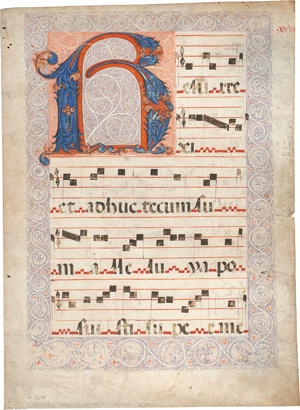 R esu rre
xi
et adhuc tecum su
m a lle lu ya po
sui sti su pe r me